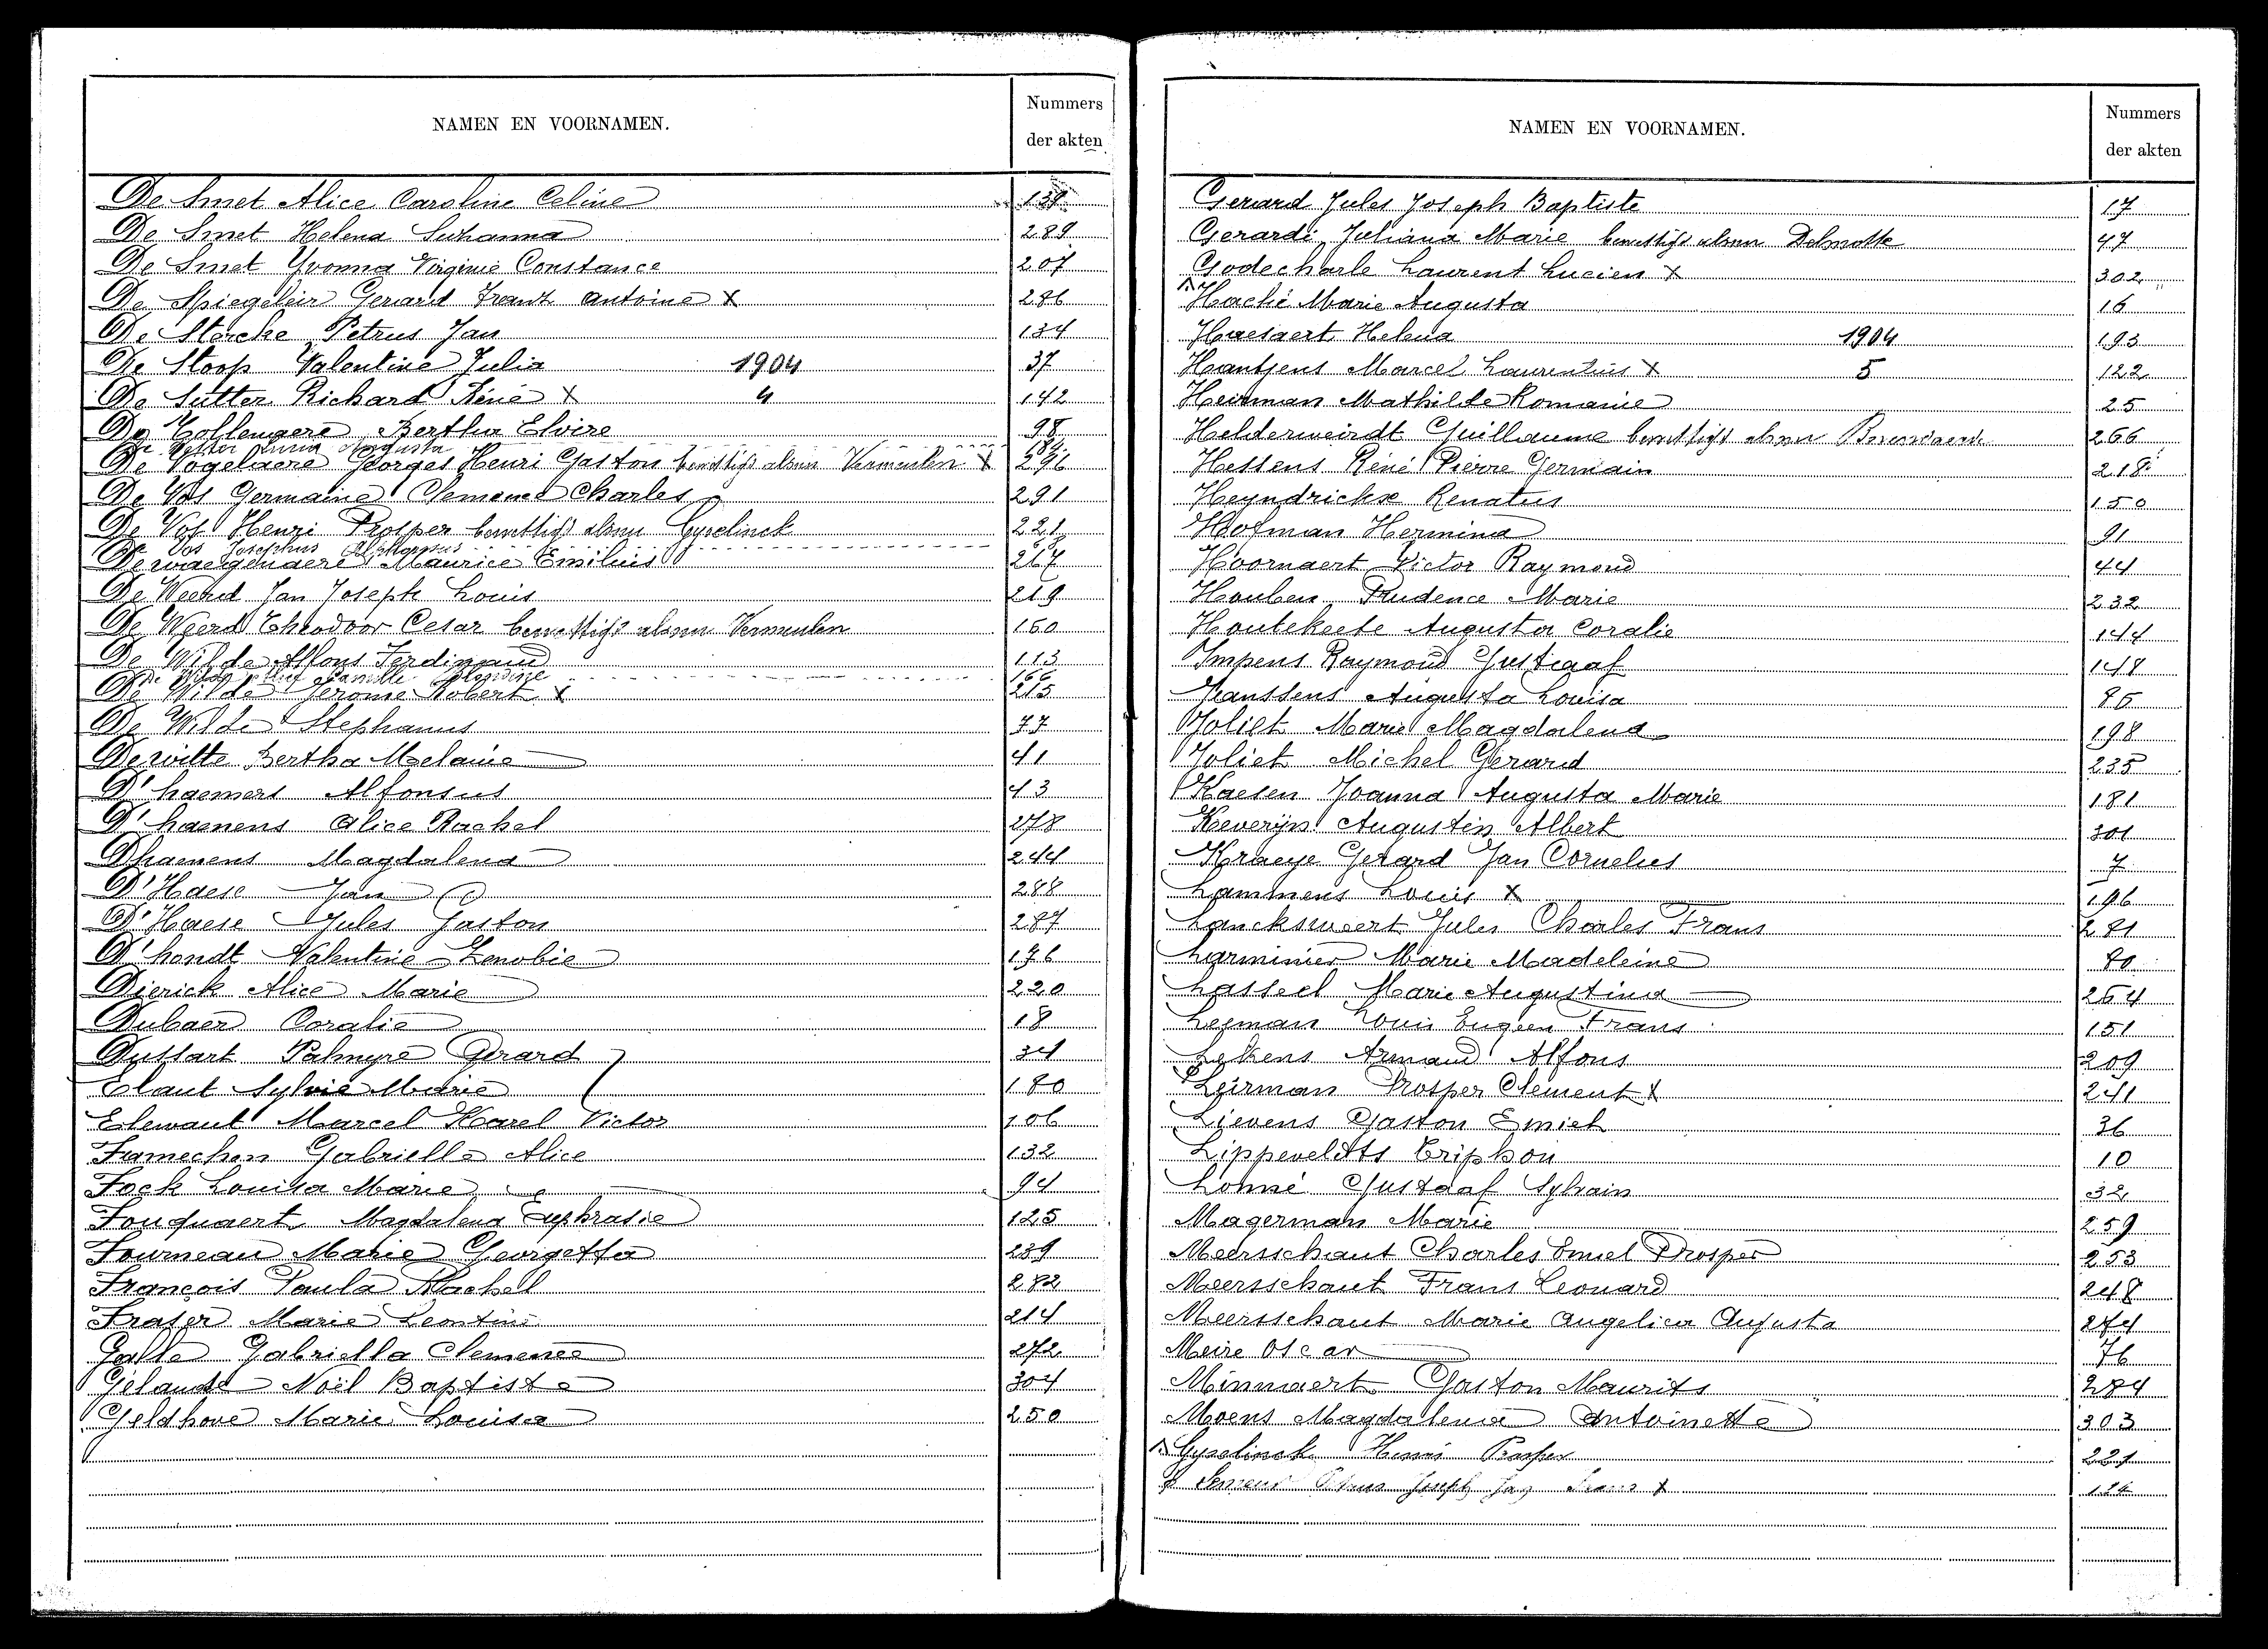 NAMEN EN VOORNAMEN.
Nummers
der akten
De Smet Alice Caroline Celine
De Smet Helena Suzanna 289
De Smet Yvonna Virginie Constance 207
De Spiegeleir Gerard Frant Antoine X 286
De Stercke Petrus Jan 134
De Stoop Valentine Julia 1904 37
De Sutter Richard Réné X 4 142
De Tollenaere Bertha Elvire 98
Augusta 184
De Vogelaere Georges Henri Gaston Vermeulen X 296
De Vos Germaine Clemence Charles 291
De Vos Henri Prosper Gyselinck 221
Vos Josephus Alphonsus
Dewaegenaere Maurice Emilius 267
De Weerd Jan Joseph Louis 219
De Weerd Theodoor Cesar Vermeulen 160
De Wilde Alfons Ferdinand 113
De Wilde Camille 166
De Wilde Jerome Robert X 215
De Wilde Stephanus 77
Dewitte Bertha Melanie 41
D'haemers Alfonsus 43
D'haenens Alice Rachel 278
Dhaenens Magdalena 244
D'Haese Jan 288
D'Haese Jules Gaston 287
D'hondt Valentine Zenobie 176
Dierick Alice Marie 220
Dubaer Coralie 18
Dussart Palmyre Gerard 34
Elaut Sylvie Marie 180
Elewaut Marcel Karel Victor 106
Famechon Gabrielle Alice 132
Fock Louisa Marie 94
Fouquaert Magdalena Euphrasie 125
Fourneau Marie Georgetta 239
François Paula Rachel 282
Fraser Marie Leontine 214
Galle Gabriella Clemence 272
Gelaude Noël Baptiste 304
Geldhove Marie Louisa 250
NAMEN EN VOORNAMEN.
Nummers
der akten
Gerard Jules Joseph Baptiste 17
Gerardi Juliana Marie Delmotte 47
Godecharle Laurent Lucien X 302
Haché Marie Augusta 16
Haesaert Helena 1904 193
Hantsens Marcel Laurentius X 5 122
Heirman Mathilde Romanie 25
Helderweirdt Guillaume 266
Hessens Réné Pierre Germain 218
Heyndrickse Renatus 150
Hofman Hermina 91
Hoornaert Victor Raymond 44
Houben Prudence Marie 232
Houtekeete Augusta Coralie 144
Impens Raymond Gustaaf 148
Janssens Augusta Louisa 85
Joliet Marie Magdalena 198
Joliet Michel Gerard 235
Kaesen Joanna Augusta Marie 181
Keveryn Augustin Albert 301
Kraeye Gerard Jan Cornelus 7
Lammens Louis X 196
Lancksweert Jules Charles Frans 281
Larminier Marie Madeleine 80
Lasseel Marie Augustina 264
Leeman Louis Eugeen Frans 151
Lekens Armand Alfons 209
Leirman Prosper Clement X 241
Lievens Gaston Emiel 36
Lippeveldts Triphon 10
Lohné Gustaaf Sylvain 32
Magerman Marie 259
Meersschaut Charles Emiel Prosper 253
Meersschaut Frans Leonard 248
Meersschaut Marie Angelica Augusta 274
Meire Oscar 76
Minnaert Gaston Maurits 284
Moens Magdalena Antoinette 303
Gyselinck Henri Prosper 221
Joseph Jan X